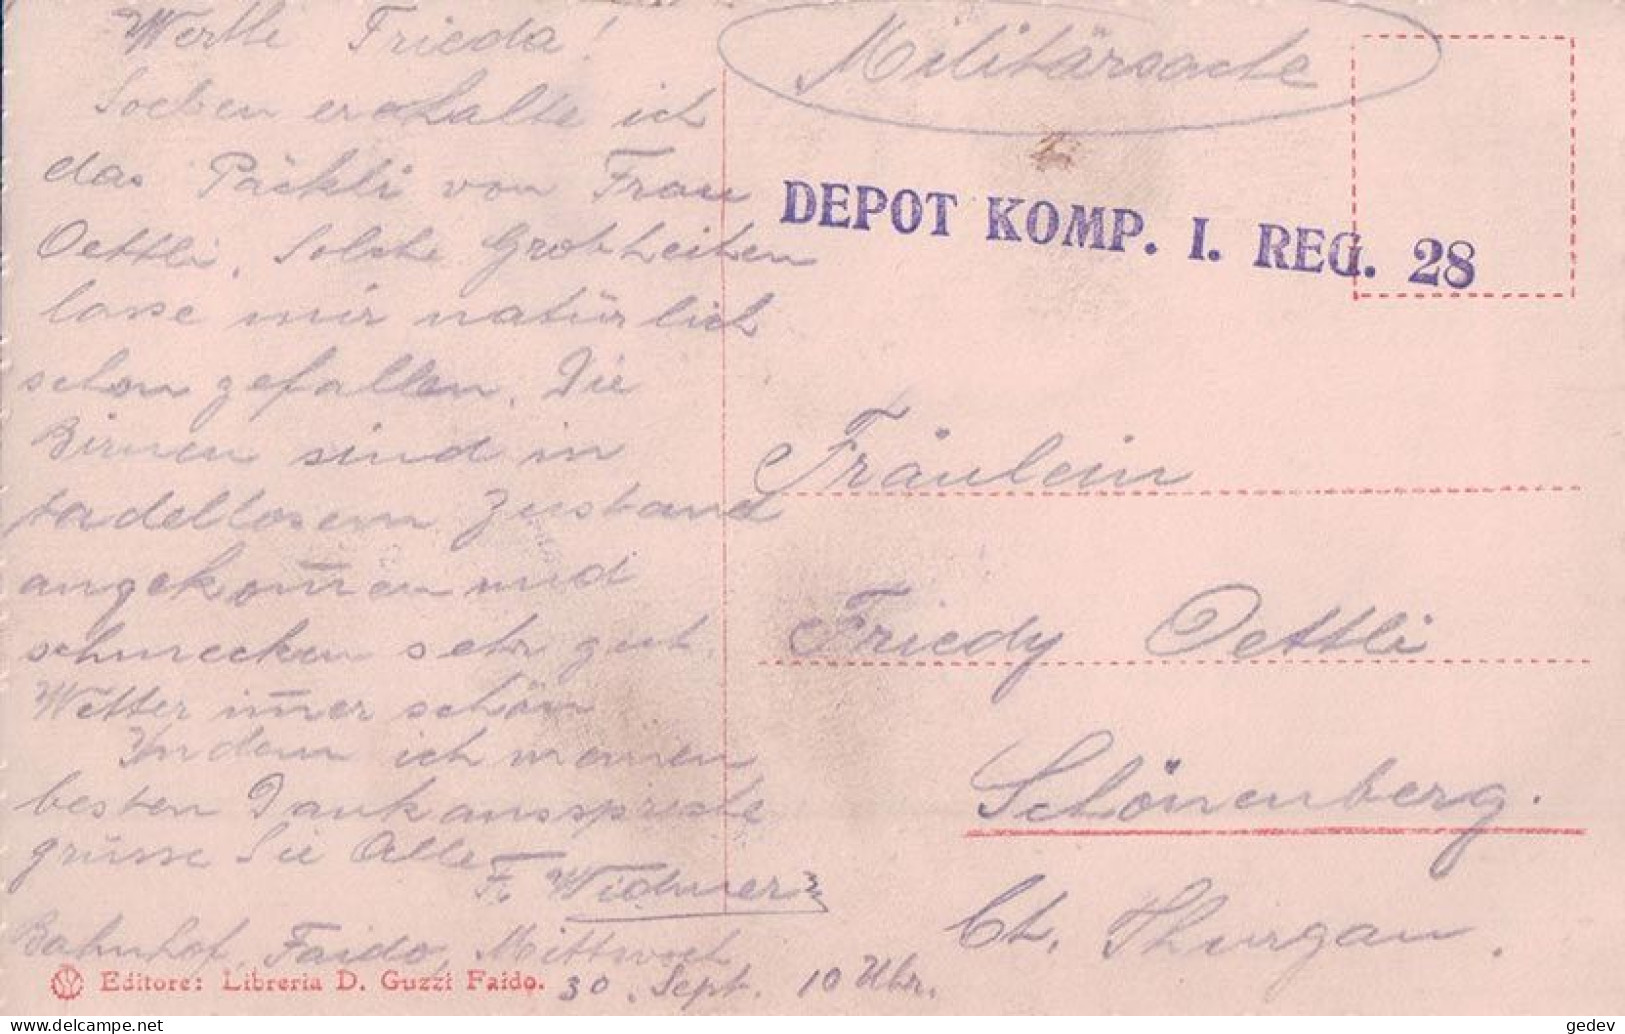 Werthe Frieda!
Soeben erhalte ich
das Päckli von Frau
Oettli. Solche Grobheiten
lasse mir natürlich
schon gefallen. Die
Birnen sind in
tadellosem Zustand
angekom̄en und
schmecken sehr gut.
Wetter im̄er schön
Indem ich meinen
besten Dank ausspreche
grüsse Sie Alle
F. Widmer
Bahnhof, Faido, Mittwoch
30. Sept. 10 Uhr.
Editore: Libreria D. Guzzi Faido.
Militärsache
DEPOT KOMP. I. REG. 28
Fräulein
Friedy Oettli
Schönenberg.
Ct. Thurgau.
gedev
delcampe.net